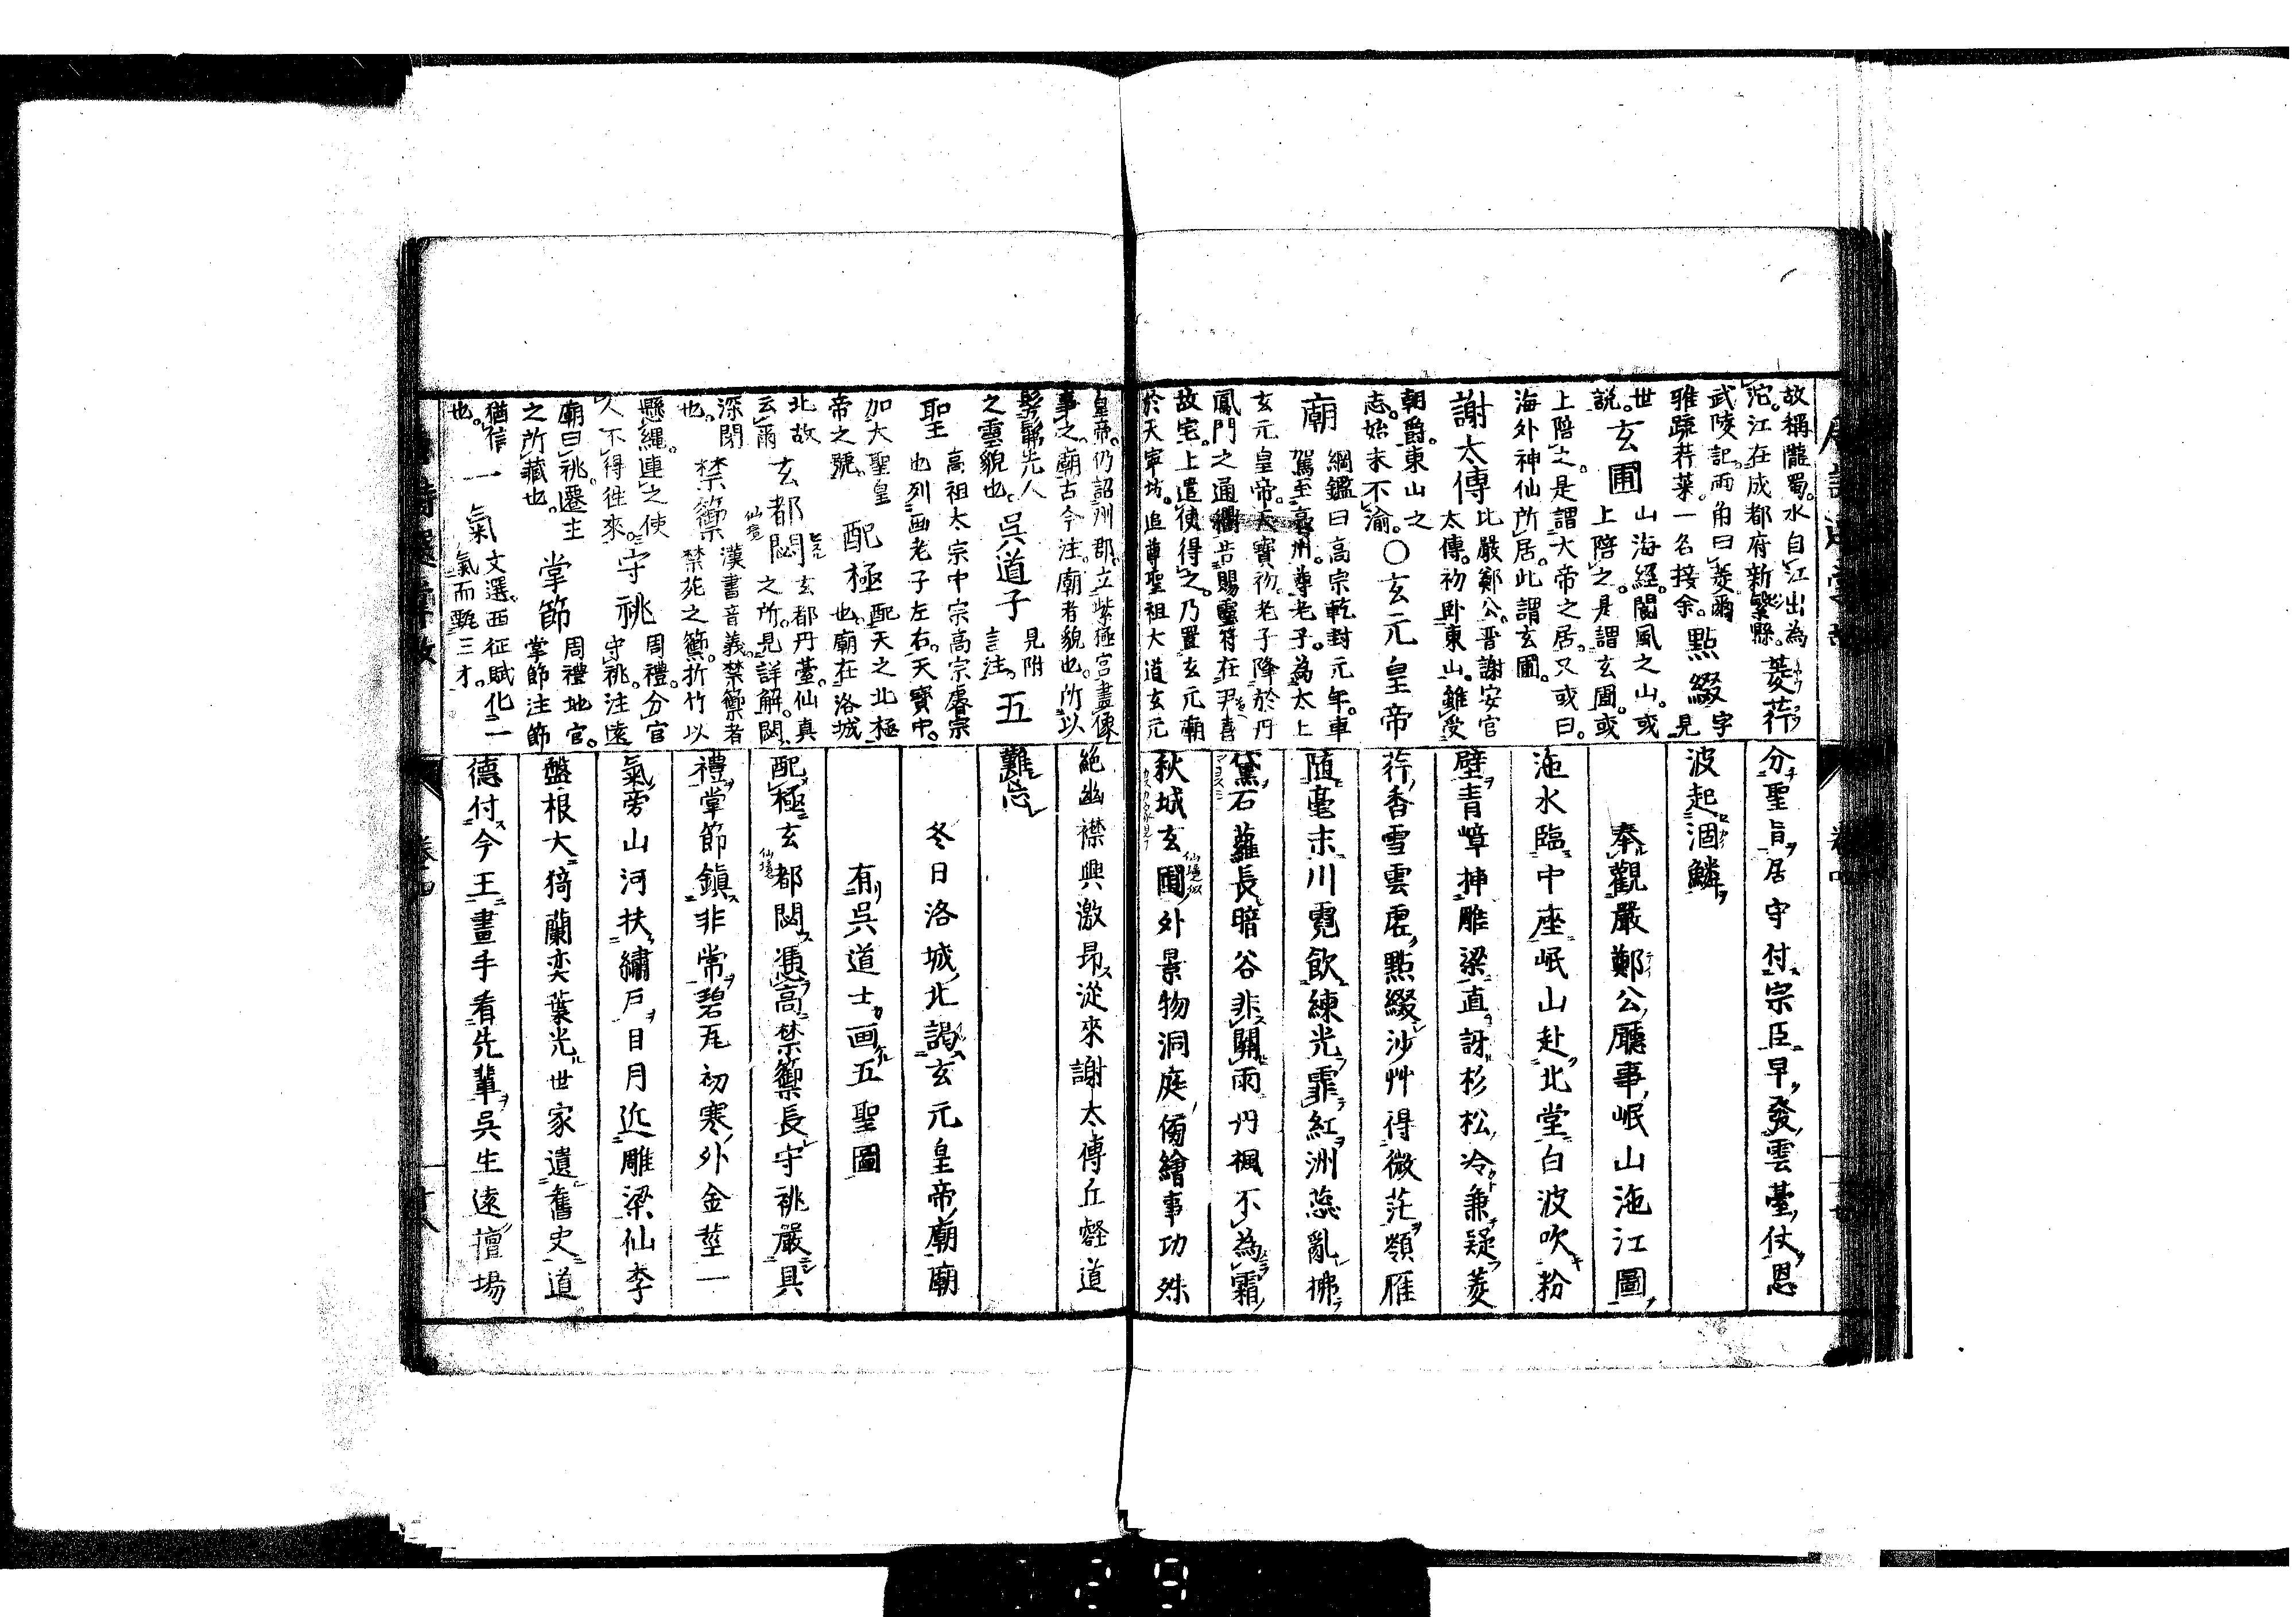 故稱隴蜀。水自江出為
沱。江在成都府新繁縣。
菱荇
武陵記。兩角曰菱。爾
雅疏。荇菜。一名接余。
點綴
字見
世說。
玄圃
山海經。閬風之山。或
上陪之。是謂玄圃。或
上陪之。是謂大帝之居。又或曰。
海外神仙所居。此謂玄圃。
謝太傅
比嚴鄭公。晉謝安官
太傅。初臥東山。雖受
朝爵。東山之
志。始末不渝。
○玄元皇帝
廟
綱鑑曰高宗乾封元年。車
駕至亳州。尊老子。為太上
玄元皇帝。天寶初。老子降於丹
鳳門之通衢。告賜靈符在尹喜
故宅。上遣使得之。乃置玄元廟
於天寧坊。追尊聖祖大道玄元
分聖旨居守付宗臣早發雲臺仗恩
波起涸鱗
奉觀嚴鄭公廳事岷山沲江圖
沲水臨中座岷山赴北堂白波吹粉
壁青嶂挿雕梁直訝杉松冷兼疑菱
荇香雪雲虛點綴沙艸得微茫嶺雁
隨毫末川霓飲練光霏紅洲蕊亂拂
黛石蘿長暗谷非關雨丹楓不為霜
秋城玄圃外景物洞庭傍繪事功殊
皇帝。仍詔州郡。立紫極宮畫像
事之。廟古今注。廟者貌也。所以
髣髴先人
之靈貌也。
吳道子
見附
言注。
五
聖
高祖太宗中宗高宗睿宗
也列画老子左右。天寶中。
加大聖皇
帝之號。
配極
配天之北極
也。廟在洛城
北故
云爾
玄都閟
玄都丹臺。仙真
之所。見詳解。閟
深閉
也。
禁籞
漢書音義。禁籞者
禁苑之籞。折竹以
懸繩連之使
人不得往來。
守祧
周禮。分官
守祧。注遠
廟曰祧。遷主
之所藏也。
掌節
周禮地官。
掌節注節
猶信
也。
一氣
文選。西征賦化一
氣而甄三才。
絕幽襟興激昂從來謝太傅丘壑道
難忘
冬日洛城北謁玄元皇帝廟廟
有吳道士画五聖圖
配極玄都閟憑高禁籞長守祧嚴具
禮掌節鎮非常碧瓦初寒外金莖一
氣旁山河扶繡戶日月近雕梁仙李
盤根大猗蘭奕葉光世家遺舊史道
德付今王畫手看先輩吳生遠擅場